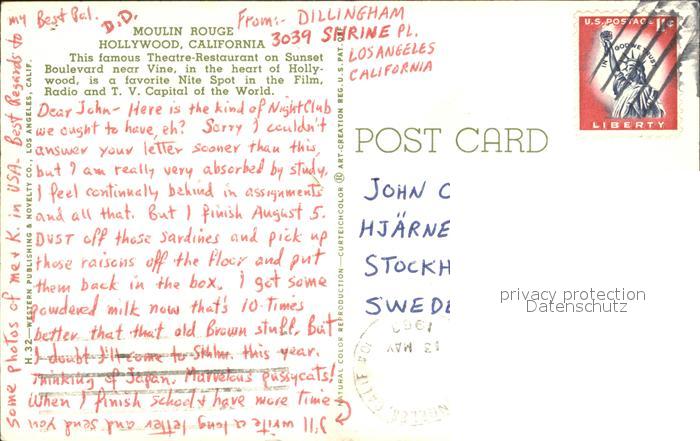 my Best Pal.
D.D.
From:- DILLINGHAM
3039 SHRINE PL.
LOS ANGELES
CALIFORNIA
MOULIN ROUGE
HOLLYWOOD, CALIFORNIA
This famous Theatre-Restaurant on Sunset
Boulevard near Vine, in the heart of Holly-
wood, is a favorite Nite Spot in the Film,
Radio and T. V. Capital of the World.
Dear John- Here is the kind of NightClub
we ought to have, eh? Sorry I couldn't
answer your letter sooner than this,
but I am really very absorbed by study,
I feel continually behind in assignments
and all that. But I finish August 5.
DUST off those sardines and pick up
those raisons off the floor and put
them back in the box. I got some
powdered milk now that's 10 times
better that that old Brown stuff. But
I doubt I'll come to Sthlm. this year.
Thinking of Japan. Marvelous pussycats!
When I finish school & have more time
I'll write a long letter and send you
Some photos of me & K. in USA- Best Regards to
H.32—WESTERN PUBLISHING & NOVELTY CO., LOS ANGELES, CALIF.
NATURAL COLOR REPRODUCTION—CURTEICHCOLOR ® ART-CREATION REG. U.S. PAT. OFF.
POST CARD
U.S. POSTAGE
IN GOD WE TRUST
LIBERTY
JOHN C
HJÄRNE
STOCKH
SWEDE
13 MAY
CALIF
privacy protection
Datenschutz